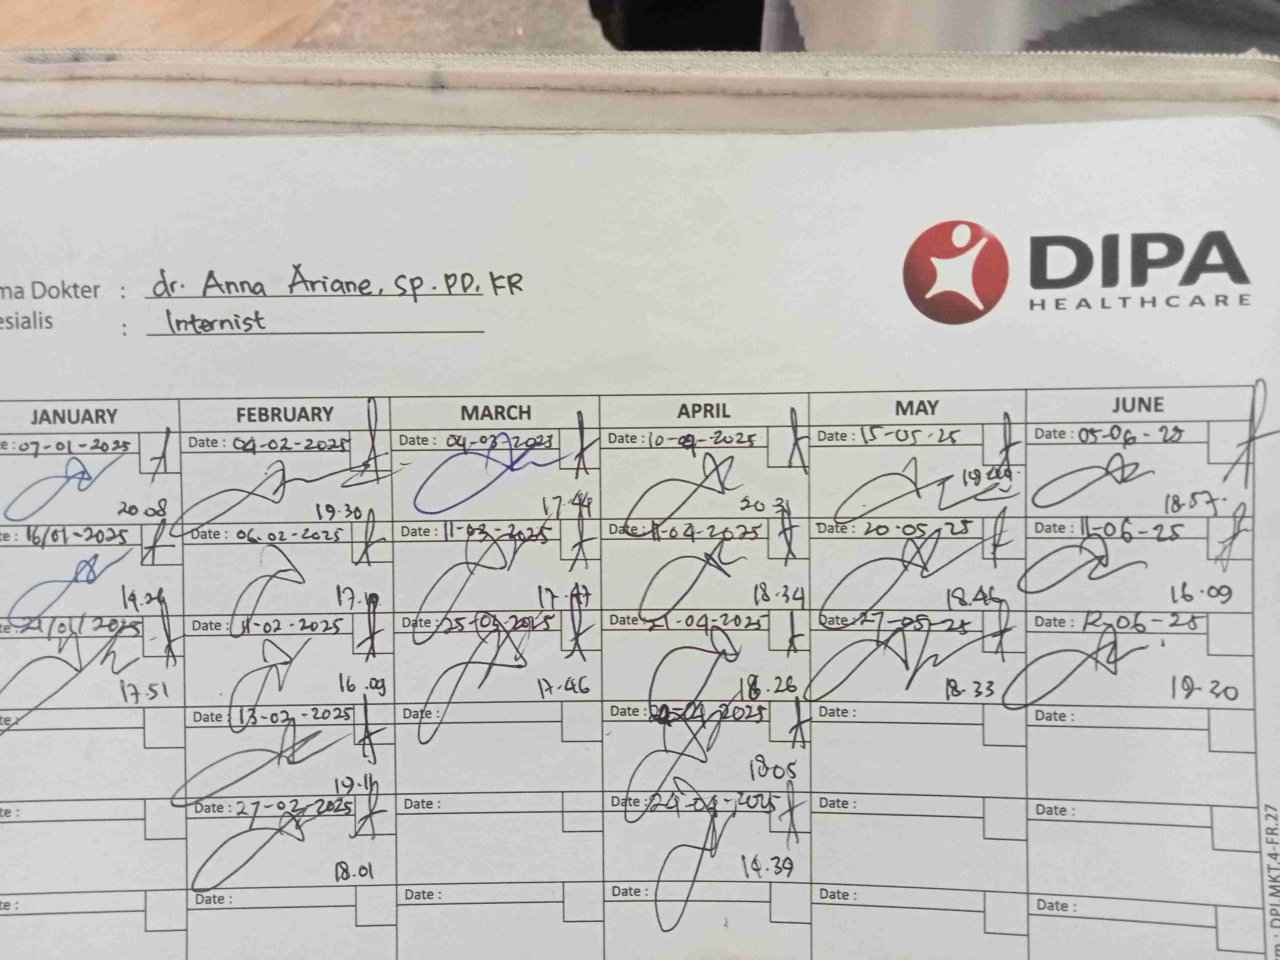 DIPA
HEALTHCARE
ma Dokter : dr. Anna Ariane, Sp.PD, KR
esialis : Internist
JANUARY FEBRUARY MARCH APRIL MAY JUNE
e: 07-01-2025 Date: 04-02-2025 Date: Date: Date: 15-05-25 Date: 05-06-25
20.08 19.30 17.49 20.31 18.57
te: 16/01-2025 Date: 06-02-2025 Date: 11-03-2025 Date: 11-04-2025 Date: 20-05-25 Date: 11-06-25
17.47 18.34 18.46 16.09
te: Date: 11-02-2025 Date: Date: 21-04-2025 Date: 27-05-25 Date: 12-06-25
17.51 16.09 17.46 18.26 18.33 19.30
te: Date: 13-02-2025 Date: Date: Date: Date:
18.05
te: Date: 27-02-2025 Date: Date: 24-04-2025 Date: Date:
18.01
te: Date: Date: Date: Date: Date:
DPI.MKT.4-FR.27